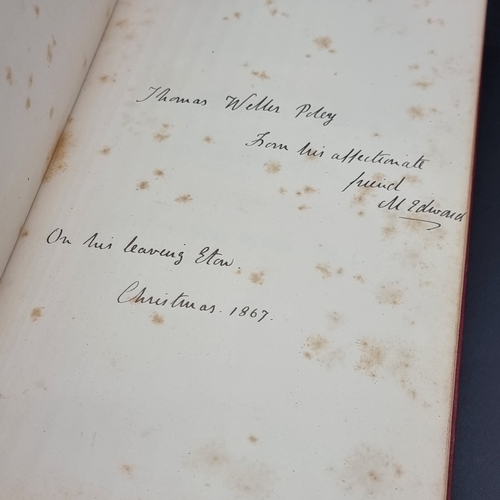 Thomas Weller Poley
From his affectionate
friend
M Edward
On his leaving Eton.
Christmas. 1867.